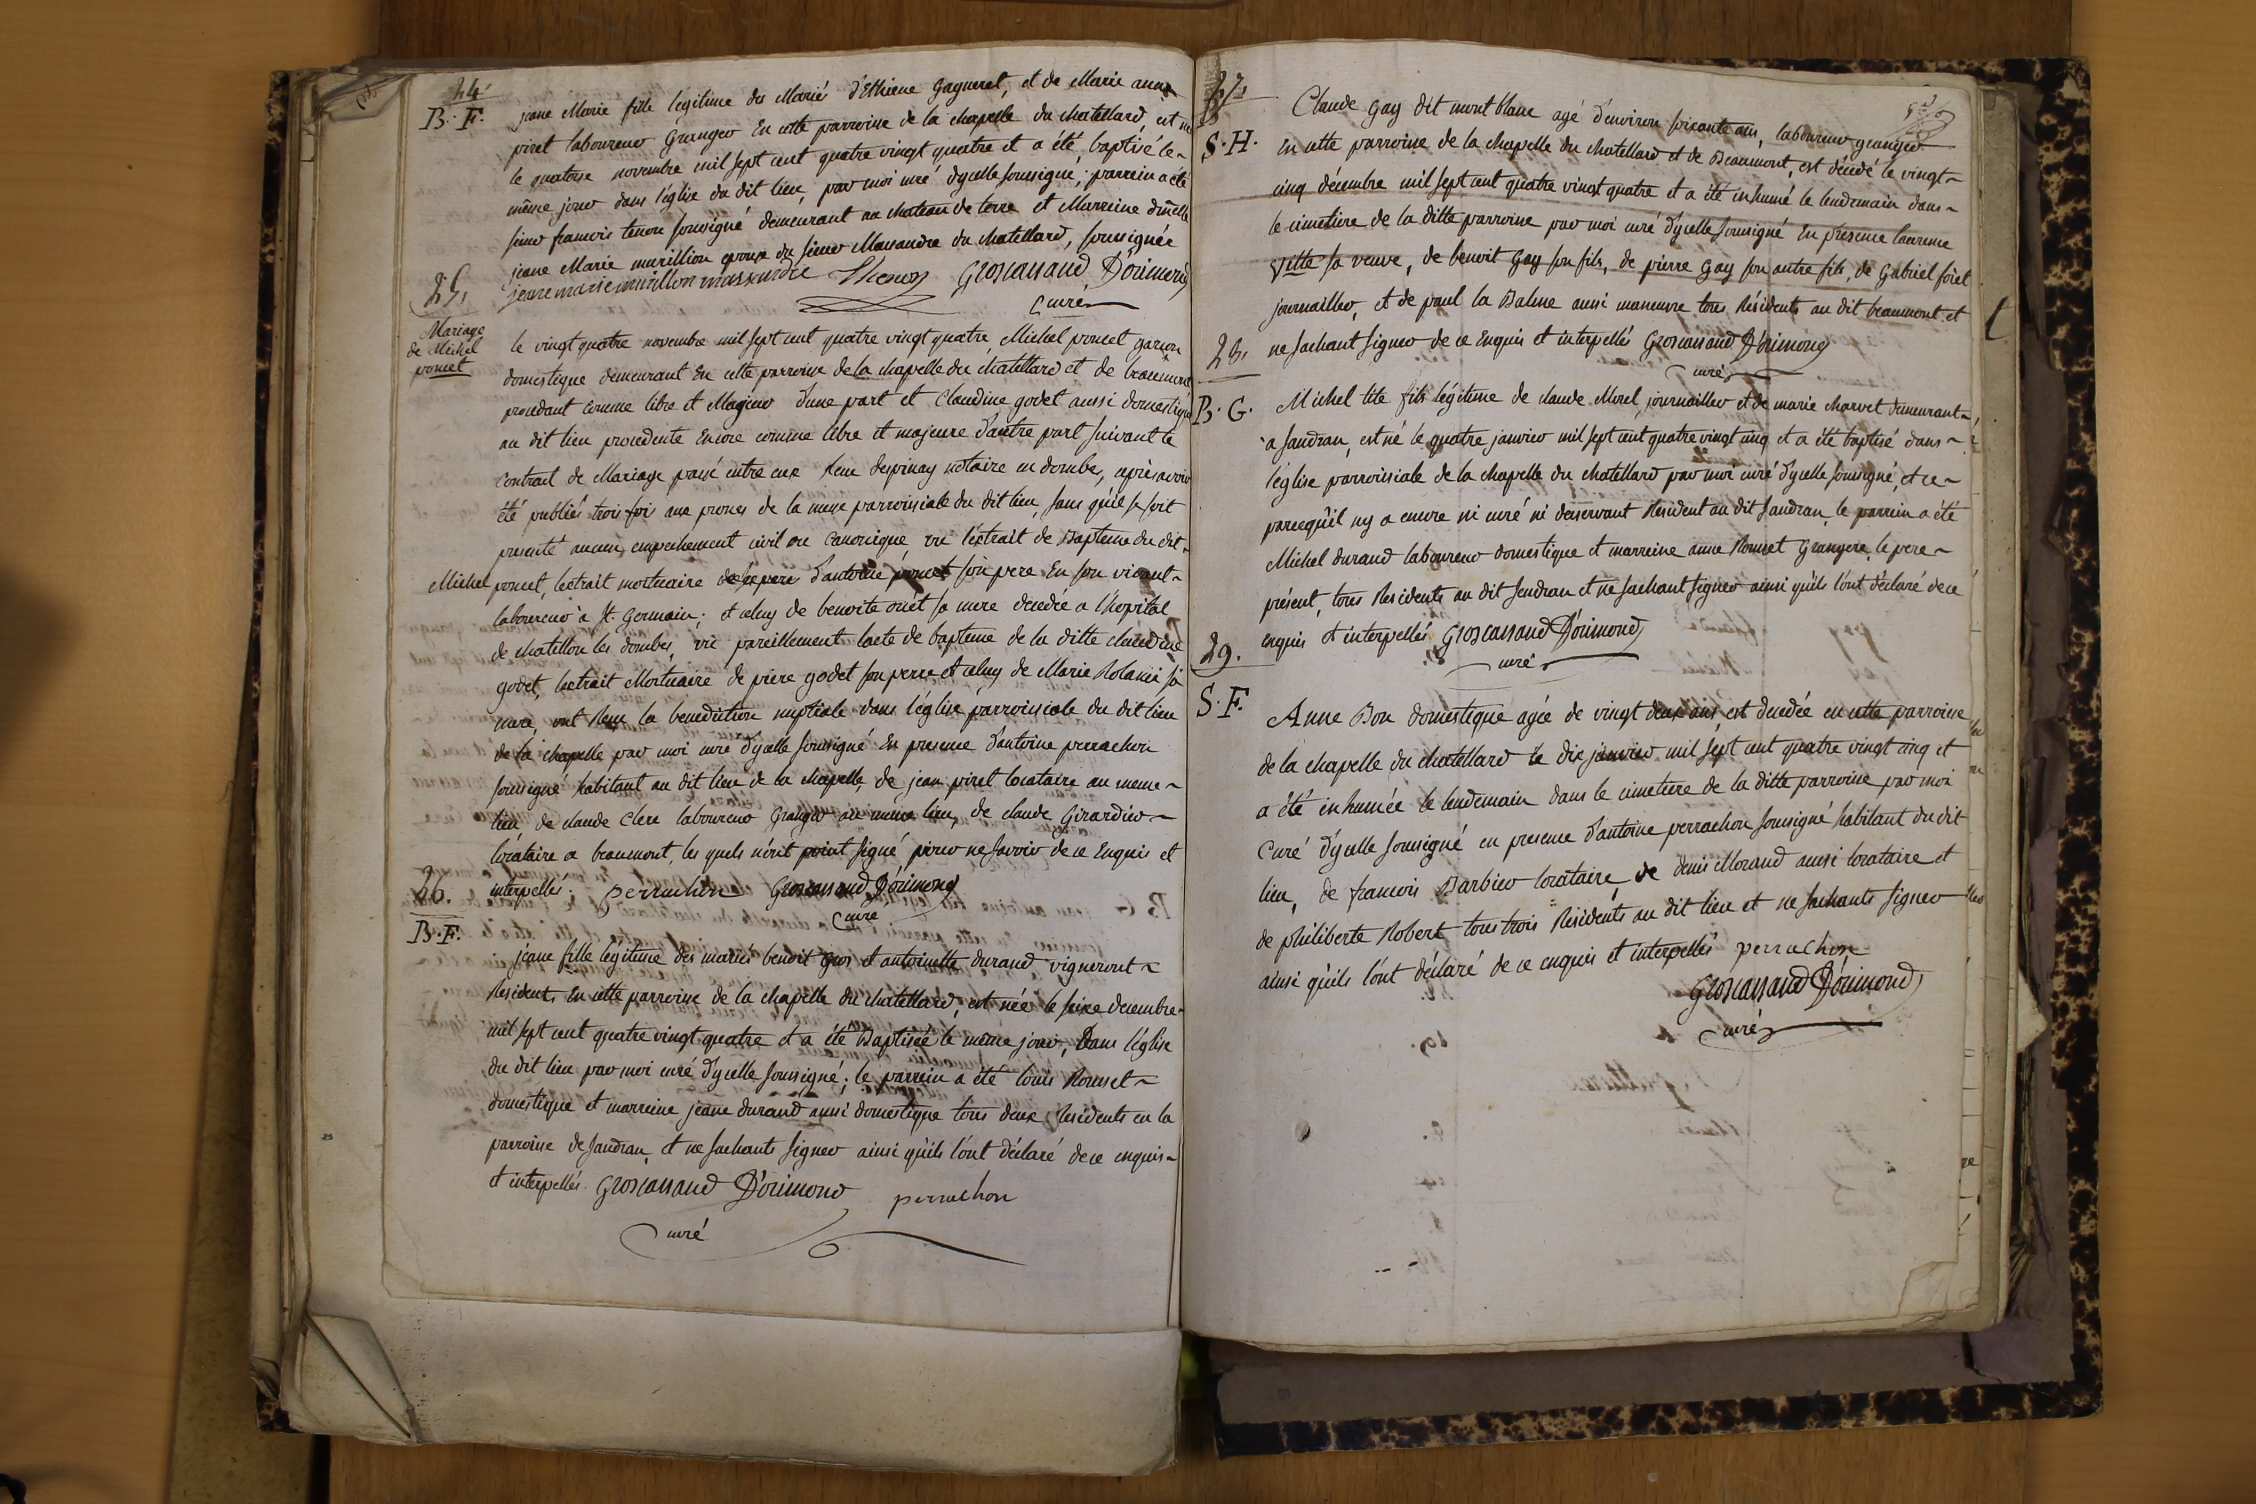 24
B. F.
jeane Marie fille legitime des Mariés d'Ethiene gagneret, et de Marie anne
piret laboureur Granger En cette parroisse de la chapelle du chatellard est né
le quatorse novembre mil sept cent quatre vingt quatre et a été baptisé le
même jour dans l'église du dit lieu, par moi curé d'ycelle soussigné; parrein a été
sieur francois tenon soussigné demeurant au chateau de terre et Marreine dmelle
jeane Marie murillion epouse du sieur Massandre du chatellard, soussignée
jeane marie murillon massandre Thenon Groscassand D'orimond
curé
25,
Mariage
de Michel
poncet
le vingt quatre novembre mil sept cent quatre vingt quatre, Michel poncet garcon
domestique demeurant En cette parroisse de la chapelle du chatellard et de beaumont
procedant comme libre et Majeur d'une part et Claudine godet aussi domestique
au dit lieu procedente Encore comme libre et majeure d'autre part suivant le
contrat de Mariage passé entre eux Reçu despinay notaire en dombe, après avoir
été publiés trois fois aux prones de la messe parroissiale du dit lieu, sans qu'il se soit
presenté aucun empechement civil ou canonique vu l'extrait de Bapteme du dit
Michel poncet, l'extrait mortuaire d'antoine poncet son pere En son vivant
laboureur à St. Germain; et celuy de benoite ouet sa mere decedée a l'hopital
de chatillon les dombes, vû pareillement l'acte de bapteme de la ditte claudine
godet, l'extrait Mortuaire de piere godet son perre et celuy de Marie Rolanii sa
mere, ont Reçu la benediction nuptiale dans l'église parroissiale du dit lieu
de la chapelle par moi curé d'ycelle soussigné En presence d'antoine perrachon
soussigné habitant au dit lieu de la chapelle, de jean piret locataire au meme
lieu de claude Clerc laboureur Granger au même lieu, de claude Girardier
locataire a beaumont, les quels n'ont point signé pour ne savoir de ce Enquis et
interpellés. perrachon Groscassand D'orimond
curé
26.
B. F.
jeane fille légitime des mariés benoit Gros et antoinette durand vigneront
Residents En cette parroisse de la chapelle du chatellard, est née le seise decembre
mil sept cent quatre vingt quatre et a été Baptisée le même jour, Dans l'église
du dit lieu par moi curé d'ycelle soussigné; le parrein a été louis Rousset
domestique et marreine jeane durand aussi domestique tous deux Residents en la
parroisse de sandran, et ne sachants signer ainsi qu'ils l'ont déclaré de ce enquis
et interpellés. Groscassand D'orimond perrachon
curé
27,
S. H.
Claude Gay dit mont blanc agé d'environ soixante ans, laboureur granger
En cette parroisse de la chapelle du chatellard et de Beaumont, est décédé le vingt
cinq décembre mil sept cent quatre vingt quatre et a été inhumé le lendemain dans
le cimetiere de la ditte parroisse par moi curé d'ycelle soussigné En presence laurence
Vitte sa veuve, de benoit Gay son fils, de pierre Gay son autre fils, de Gabriel foret
journaillier, et de paul la Balme aussi manœuvre tous Résidents au dit beaumont et
ne sachant signer de ce Enquis et interpellés Groscassand D'orimond
curé
28,
B. G.
Michel tite fils légitime de claude Morel, journaillier et de marie charvet demeurant
a sandran, est né le quatre janvier mil sept cent quatre vingt cinq et a été baptisé dans
l'église parroissiale de la chapelle du chatellard par moi curé d'ycelle soussigné, et ce
parcequ'il ny a encore ni curé ni desservant Résident au dit sandran, le parrein a été
Michel durand laboureur domestique et marreine anne Rousset Grangere, le pere
présent, tous Residents au dit sandran et ne sachant signer ainsi qu'ils l'ont déclaré de ce
enquis et interpellés Groscassand D'orimond
curé
29.
S. F.
Anne Bon domestique agée de vingt deux ans, est decedée en cette parroisse
de la chapelle du chatellard le dix janvier mil sept cent quatre vingt cinq et
a été inhumée le lendemain dans le cimetiere de la ditte parroisse par moi
Curé d'ycelle soussigné en presence d'antoine perrachon soussigné habitant du dit
lieu, de francois Barbier locataire de denis Morand aussi locataire et
de philiberte Robert tous trois Résidents au dit lieu et ne sachants signer
ainsi qu'ils l'ont déclaré de ce enquis et interpellés perrachon
Groscassand D'orimond
curé